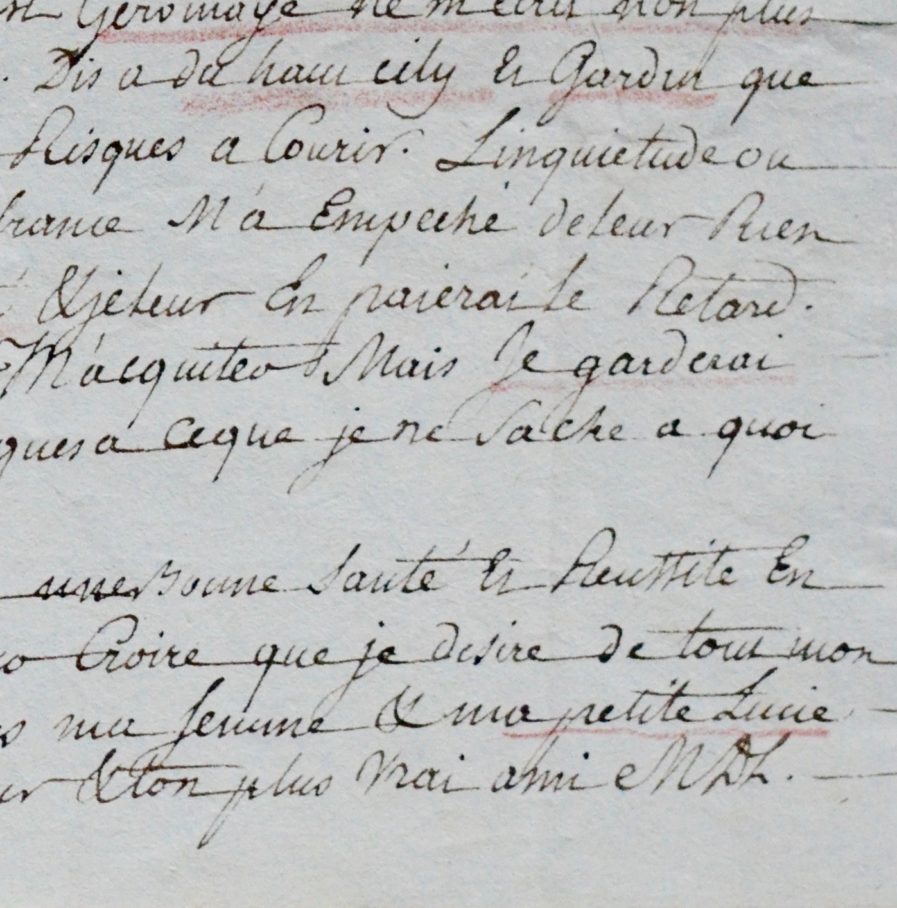 Geromaye ne m'ecrit non plus
Dis a du haut cily Et Gardin que
Risques a Courir. Linquietude ou
france M'a Empeché deleur Rien
& jeleur En paierai le Retard.
M'acquiter Mais Je garderai
ques a ceque je ne Sache a quoi
une Bonne Santé Et Reussite En
Croire que je desire de tout mon
ma femme & ma petite Lucie
ur & ton plus Vrai ami MDL.